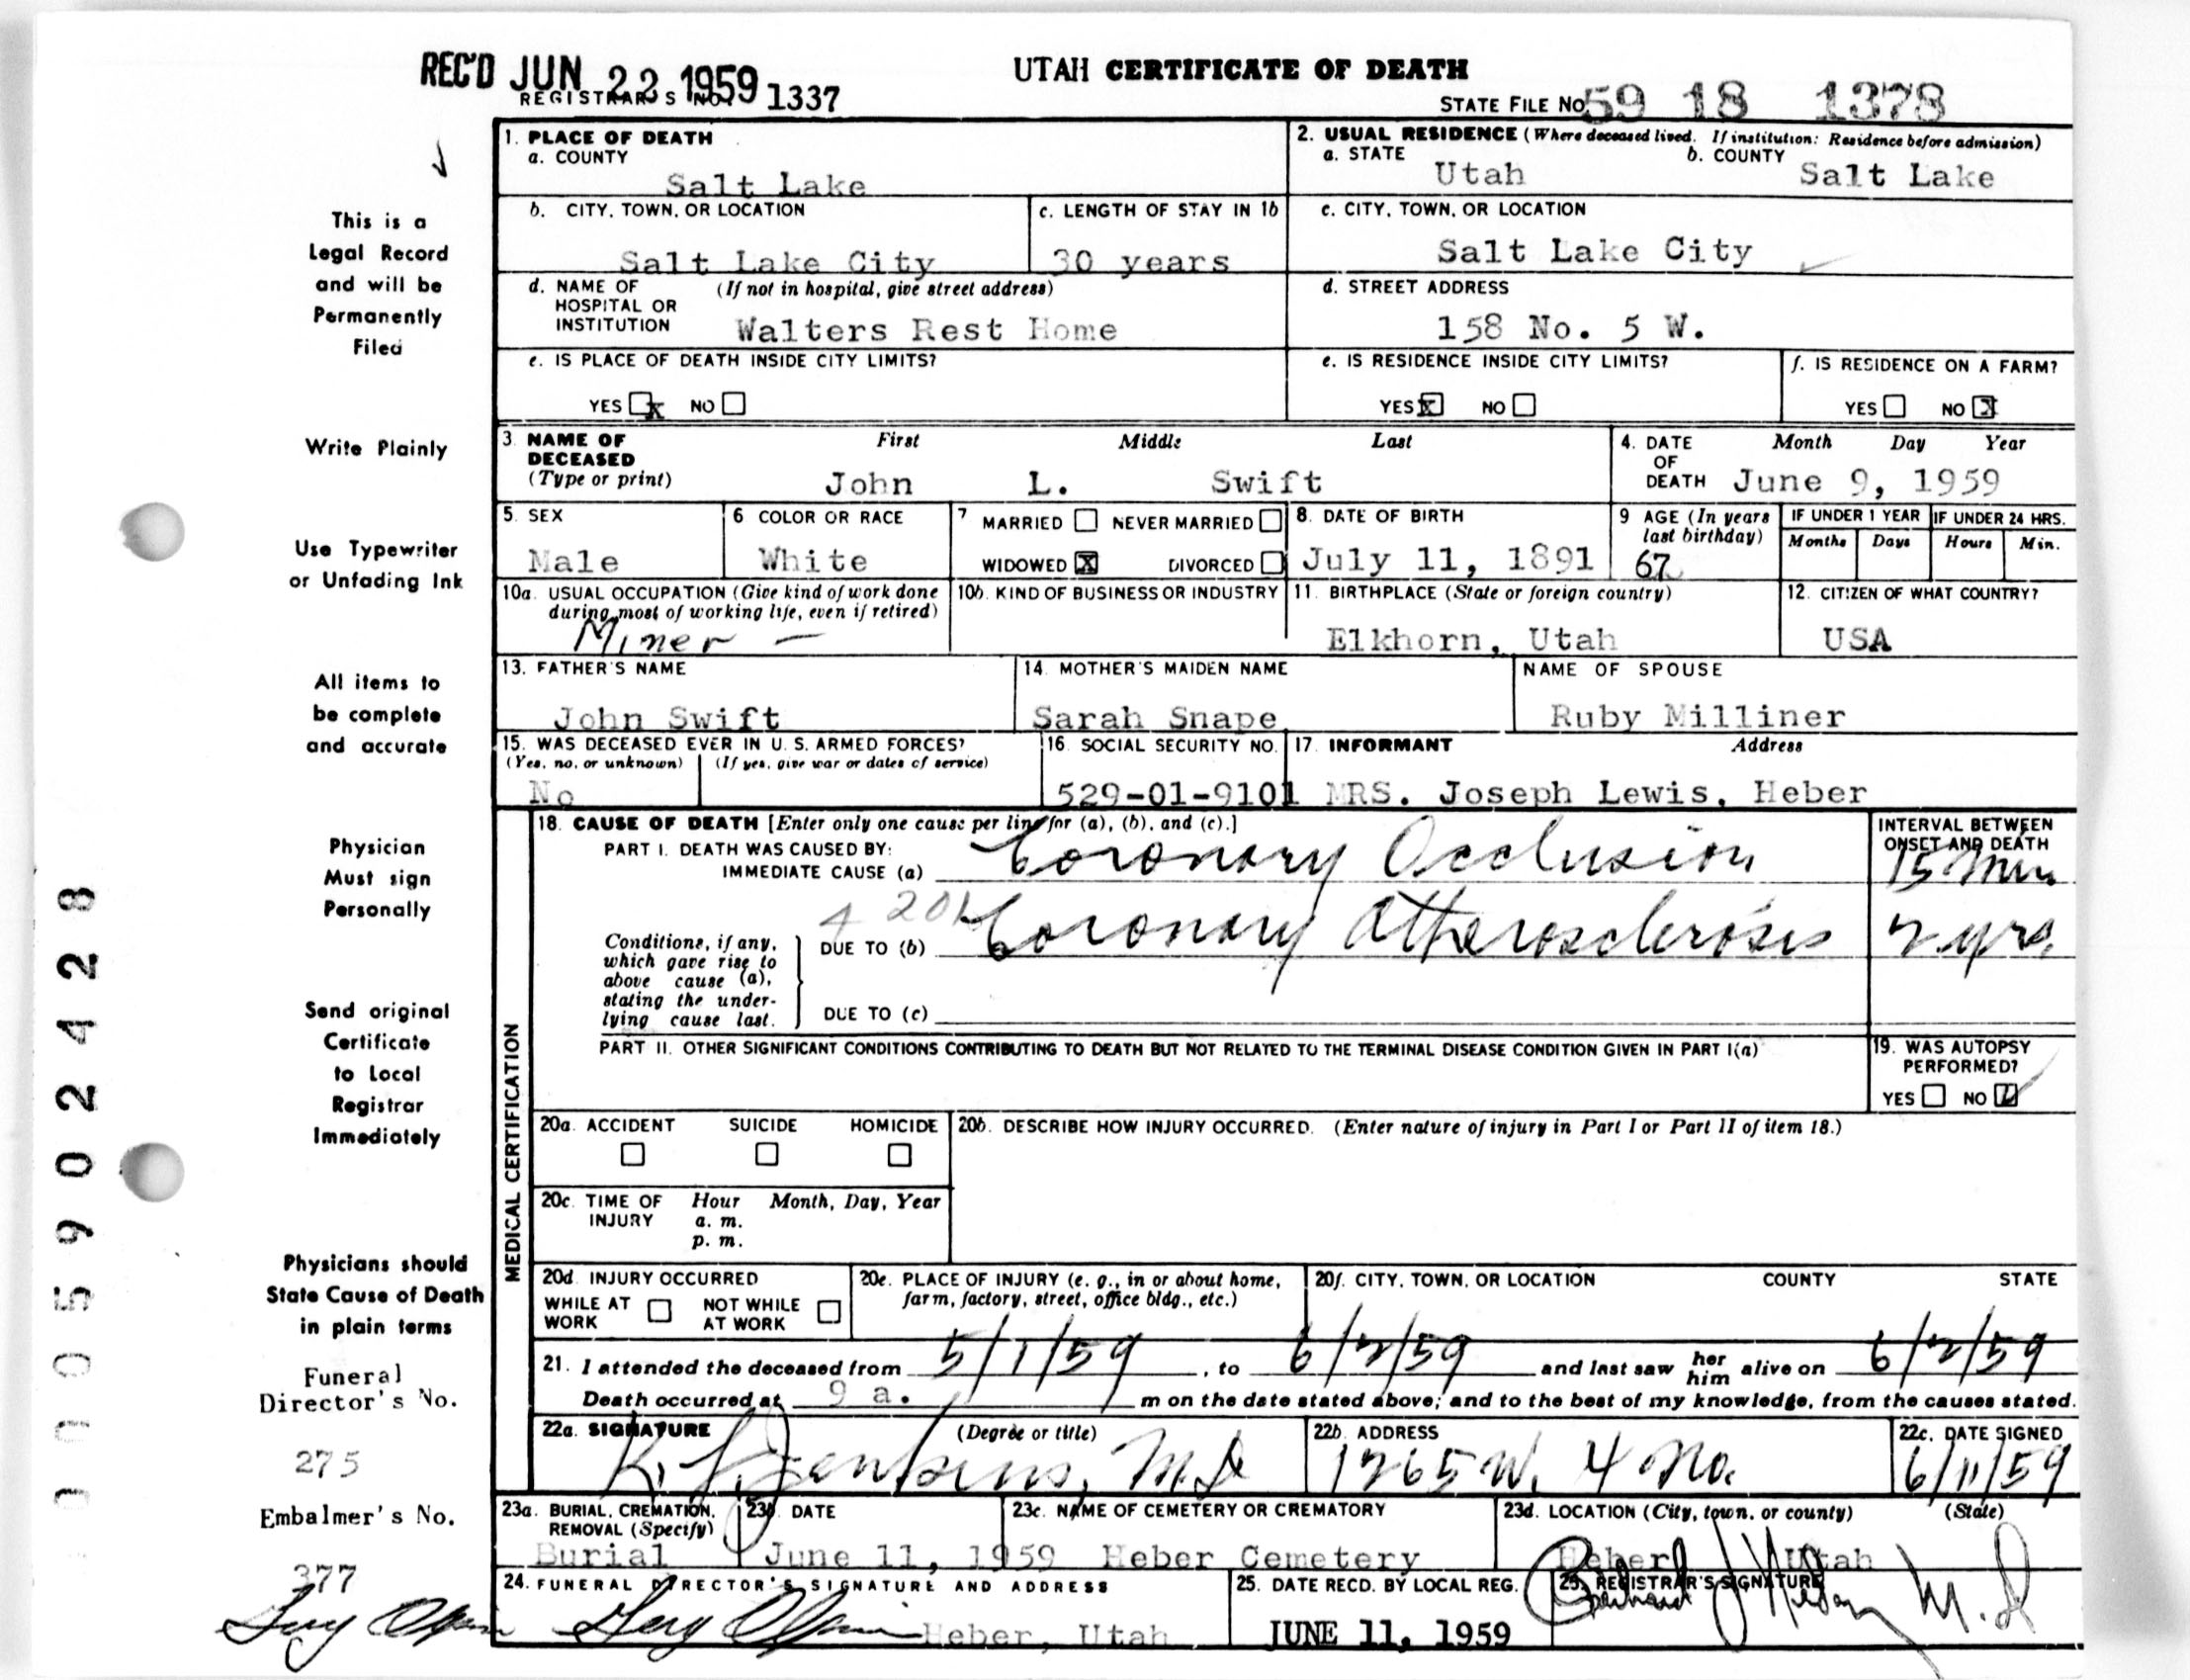 REC'D JUN 22 1959
UTAH CERTIFICATE OF DEATH
REGISTRAR'S NO. 1337
STATE FILE NO. 59 18 1378
1. PLACE OF DEATH
a. COUNTY
Salt Lake
2. USUAL RESIDENCE (Where deceased lived. If institution: Residence before admission)
a. STATE b. COUNTY
Utah Salt Lake
b. CITY, TOWN, OR LOCATION
Salt Lake City
c. LENGTH OF STAY IN 1b
30 years
c. CITY, TOWN, OR LOCATION
Salt Lake City
d. NAME OF HOSPITAL OR INSTITUTION (If not in hospital, give street address)
Walters Rest Home
d. STREET ADDRESS
158 No. 5 W.
e. IS PLACE OF DEATH INSIDE CITY LIMITS?
YES X NO
e. IS RESIDENCE INSIDE CITY LIMITS?
YES X NO
f. IS RESIDENCE ON A FARM?
YES NO X
3. NAME OF DECEASED (Type or print) First Middle Last
John L. Swift
4. DATE OF DEATH Month Day Year
June 9, 1959
5. SEX
Male
6 COLOR OR RACE
White
7 MARRIED NEVER MARRIED
WIDOWED X DIVORCED
8. DATE OF BIRTH
July 11, 1891
9 AGE (In years last birthday)
67
IF UNDER 1 YEAR IF UNDER 24 HRS.
Months Days Hours Min.
10a. USUAL OCCUPATION (Give kind of work done during most of working life, even if retired)
Miner –
10b. KIND OF BUSINESS OR INDUSTRY
11. BIRTHPLACE (State or foreign country)
Elkhorn, Utah
12. CITIZEN OF WHAT COUNTRY?
USA
13. FATHER'S NAME
John Swift
14. MOTHER'S MAIDEN NAME
Sarah Snape
NAME OF SPOUSE
Ruby Milliner
15. WAS DECEASED EVER IN U. S. ARMED FORCES?
(Yes, no, or unknown) (If yes, give war or dates of service)
No
16. SOCIAL SECURITY NO.
529-01-9101
17. INFORMANT Address
MRS. Joseph Lewis, Heber
MEDICAL CERTIFICATION
18. CAUSE OF DEATH [Enter only one cause per line for (a), (b), and (c).]
PART I. DEATH WAS CAUSED BY:
IMMEDIATE CAUSE (a) Coronary Occlusion
INTERVAL BETWEEN ONSET AND DEATH
15 Min
Conditions, if any, which gave rise to above cause (a), stating the underlying cause last.
DUE TO (b) Coronary Atherosclerosis
2 yrs.
DUE TO (c)
PART II. OTHER SIGNIFICANT CONDITIONS CONTRIBUTING TO DEATH BUT NOT RELATED TO THE TERMINAL DISEASE CONDITION GIVEN IN PART I(a)
19. WAS AUTOPSY PERFORMED?
YES NO
20a. ACCIDENT SUICIDE HOMICIDE
20b. DESCRIBE HOW INJURY OCCURRED. (Enter nature of injury in Part I or Part II of item 18.)
20c. TIME OF INJURY Hour Month, Day, Year
a. m.
p. m.
20d. INJURY OCCURRED
WHILE AT WORK NOT WHILE AT WORK
20e. PLACE OF INJURY (e. g., in or about home, farm, factory, street, office bldg., etc.)
20f. CITY, TOWN, OR LOCATION COUNTY STATE
21. I attended the deceased from 5/1/59, to 6/2/59 and last saw her him alive on 6/2/59
Death occurred at 9 a. m on the date stated above; and to the best of my knowledge, from the causes stated.
22a. SIGNATURE (Degree or title)
K. J. Jenkins, M.D
22b. ADDRESS
1265 W. 4 No.
22c. DATE SIGNED
6/11/59
23a. BURIAL, CREMATION, REMOVAL (Specify)
Burial
23b DATE
June 11, 1959
23c. NAME OF CEMETERY OR CREMATORY
Heber Cemetery
23d. LOCATION (City, town, or county) (State)
Heber Utah
24. FUNERAL DIRECTOR'S SIGNATURE AND ADDRESS
Heber, Utah
25. DATE RECD. BY LOCAL REG.
JUNE 11, 1959
25. REGISTRAR'S SIGNATURE
M.D
This is a
Legal Record
and will be
Permanently
Filed
Write Plainly
Use Typewriter
or Unfading Ink
All items to
be complete
and accurate
Physician
Must sign
Personally
Send original
Certificate
to Local
Registrar
Immediately
Physicians should
State Cause of Death
in plain terms
Funeral
Director's No.
275
Embalmer's No.
377
0005902428